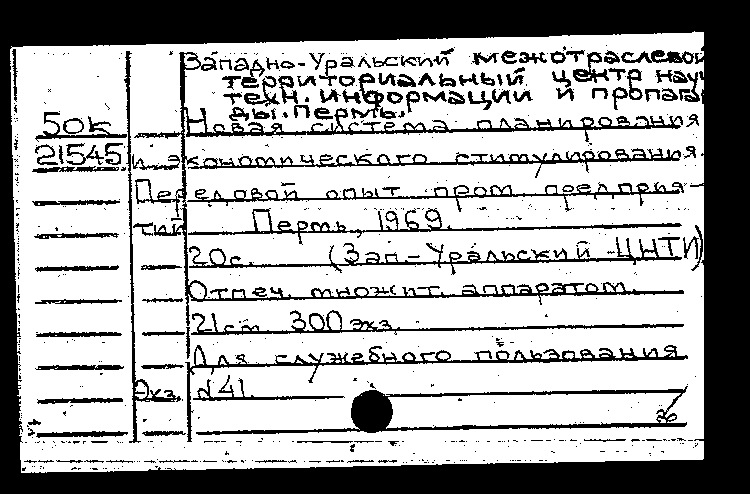 Западно-Уральский межотраслевой
территориальный центр науч
техн. информации и пропаган
ды. Пермь.
50к Новая система планирования
21545 и экономического стимулирования.
Передовой опыт пром. предприя-
тий Пермь, 1969.
20с. (Зап-Уральский ЦНТИ)
Отпеч. множит. аппаратом.
21см 300 экз.
Для служебного пользования
Экз. №41.